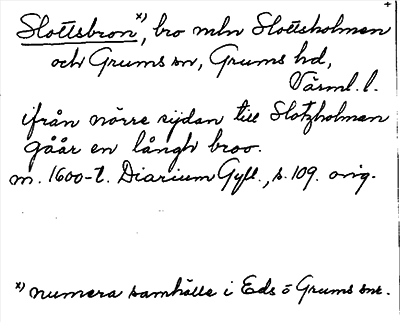 +
Slottsbron x), bro mln Slottsholmen
och Grums sn, Grums hd,
Värml. l.
ifrån nörre sijdan till Slotzholman
gåår en långh broo.
m. 1600-t. Diarium Gyll., s. 109. orig.
x) numera samhälle i Eds o Grums snr.